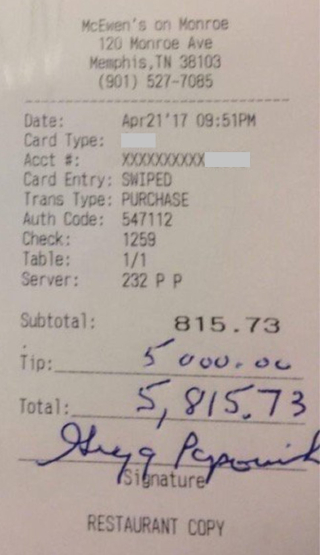 McEwen's on Monroe
120 Monroe Ave
Memphis,TN 38103
(901) 527-7085
Date: Apr21'17 09:51PM
Card Type:
Acct #: XXXXXXXXXX
Card Entry: SWIPED
Trans Type: PURCHASE
Auth Code: 547112
Check: 1259
Table: 1/1
Server: 232 P P
Subtotal: 815.73
Tip: 5 000.00
Total: 5,815.73
Gregg Popovich
Signature
RESTAURANT COPY